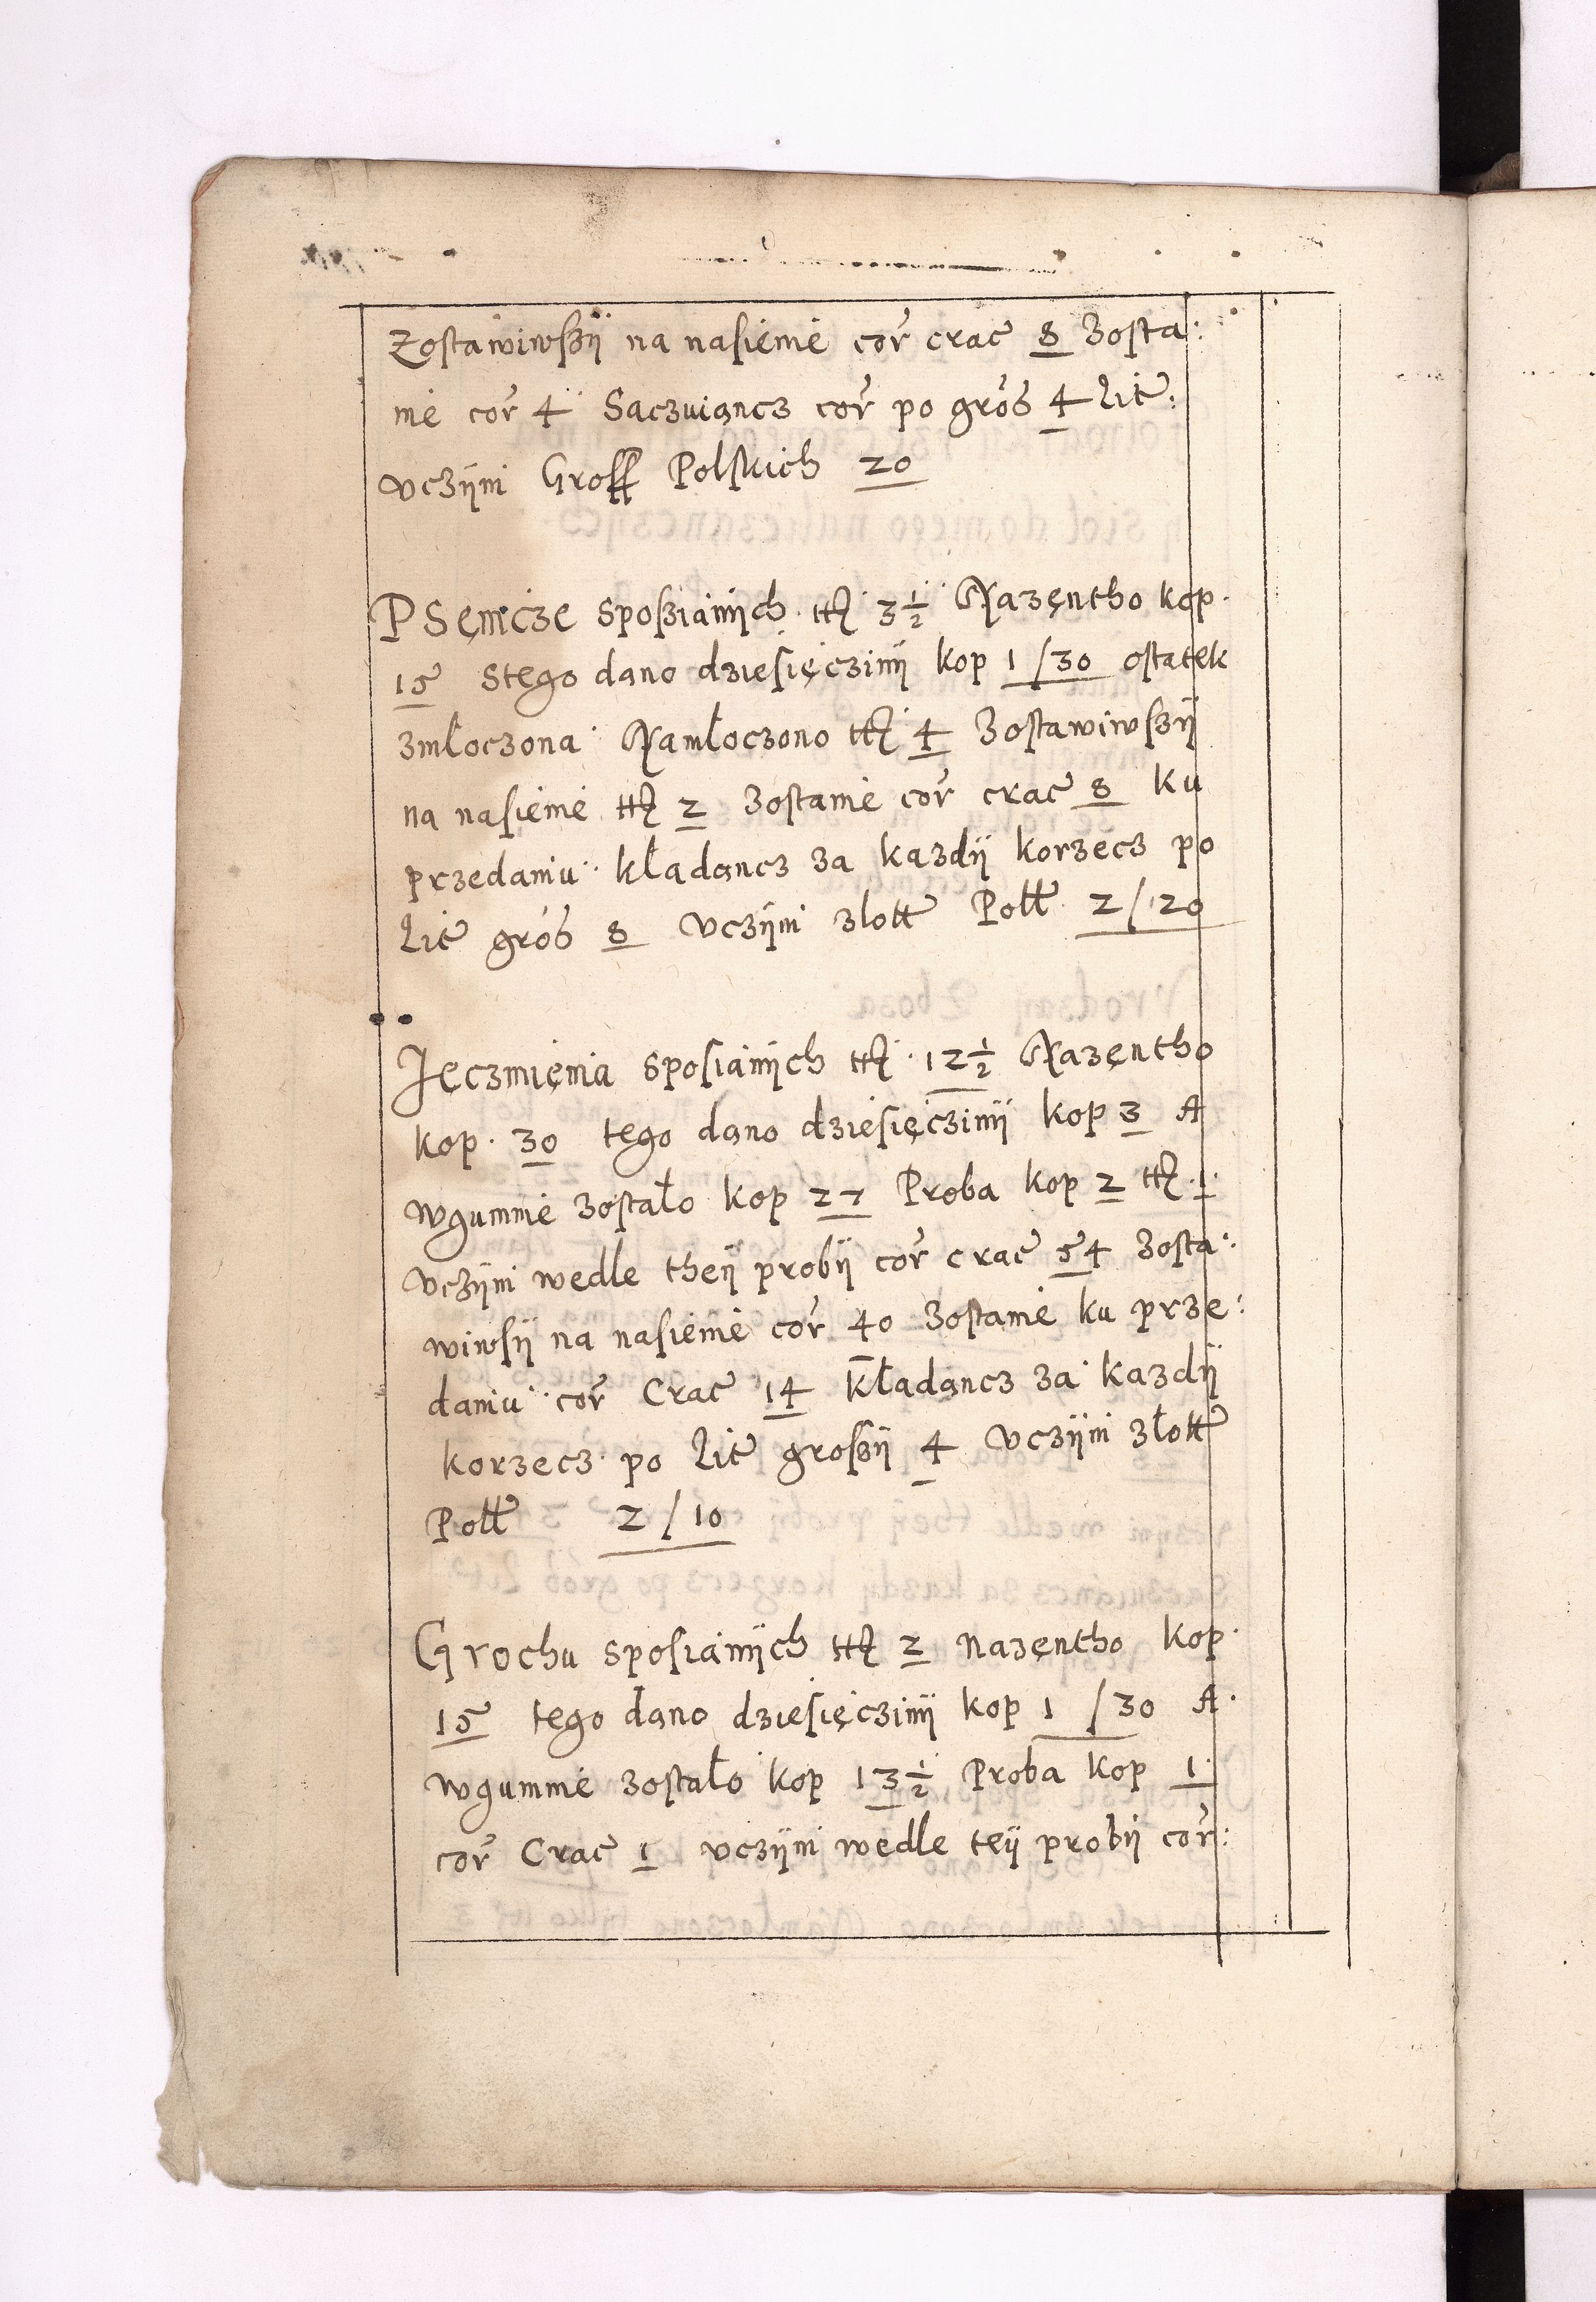 Zostawiwszÿ na nasienie cor crac 8 Zosta:
nie cor 4 Saczuiancz cor po gros 4 lit:
uczÿni Gross Polskich 20
PSęnicze spoßianÿch ttʒ 3½ Nazęntho kop.
15 Stego dano dziesięczinÿ kop 1/30 ostatek
zmłoczona Namłoczono ttʒ 4 Zostawiwszÿ
na nasienie ttʒ 2 Zostanie cor crac 8 ku
przedaniu kładancz za kazdÿ korzecz po
lit gros 8 uczÿni zlott Poll 2/20
Jęczmięnia sposianÿch ttʒ 12½ Nazęntho
kop. 30 tego dano dziesięczinÿ kop 3 A
wgumnie zostało kop 27 Proba kop 2 ttʒ 1
uczÿni wedle theÿ probÿ cor crac 54 Zosta:
wiwsÿ na nasienie cor 40 Zostanie ku prze:
daniu cor Crac 14 Kładancz za kazdÿ
korzecz po lit grossÿ 4 uczÿni złott
Poll 2/10
Grochu sposianÿch ttʒ 2 nazęntho kop.
15 tego dano dziesięczinÿ kop 1/30 A.
wgumnie zostało kop 13½ Proba kop 1
cor Crac 1 uczÿni wedle teÿ probÿ cor: